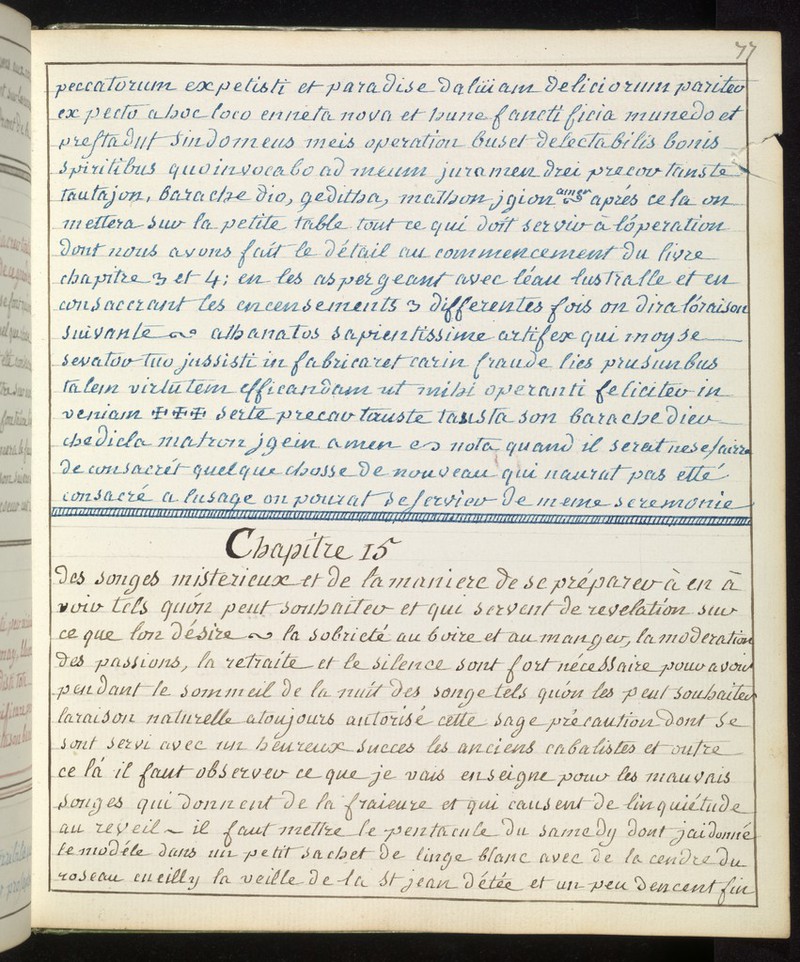 77
peccatorum expelisti et paradise daluiam deliciorum pariter
expecto ahoc loco enneta nova et hunc sancti ficia munedo et
prestadut sindomeus meis operation buset delectabilis bonis
spiritibus quoinvocabo ad meum juramen drei precor tanste
tautajon, barache dio, geditha, mathon jgion amen aprés cela on
mettera sur la petite table tout ce qui doît servir à lóperation
dont nous avons fait le détail au commencement du livre
chapitre 3 et 4; en les aspergeant avec léau lustralle et en
consaccrant les encensements 3 differentes fois on dira lóraison
suivante athanatos sapientissime artifex qui moyse
sevator tuo jussisti in fabricaret carin fraude lies prusunbus
talem virlutem efficandam ut mihi operanti feliciter in
veniam ✠✠✠ serte precor tauste tausta son barache dieu
chedicla matron jgein amen nota quand il serat nesesairre
de consacrét quelque chosse de nouveau qui naurat pas etté
consacré a lusage on pourat se servier de meme seremonie
Chapitre 15
des songes misterieux et de lamaniere de se préparer à en à
voir tels quón peut souhaiter et qui servent de revelatión sur
ce que lon désire ~ la sobrieté au boire et au manger, la moderation
des passions, la retraite et le silence sont fort nécessaire pour avoir
pendant le sommeil de la nuit des songe tels quón les peut souhaiter
laraison naturelle atoujours autorisé cette sage précaution dont se
sont servi avec un heureux succes les anciens cabalistes et outre
ce lá il faut observer ce que je vais enseigne pour les mauvais
songes qui donnent de la fraieure et qui causent de linquiétude
au reveil ~ il faut mettre le pentacule du samedy dont jaidonné
le modéle dans un petit sachet de linge blanc avec de la cendre du
roseau cueilly la veille de la St jean détée et un peu dencent fin